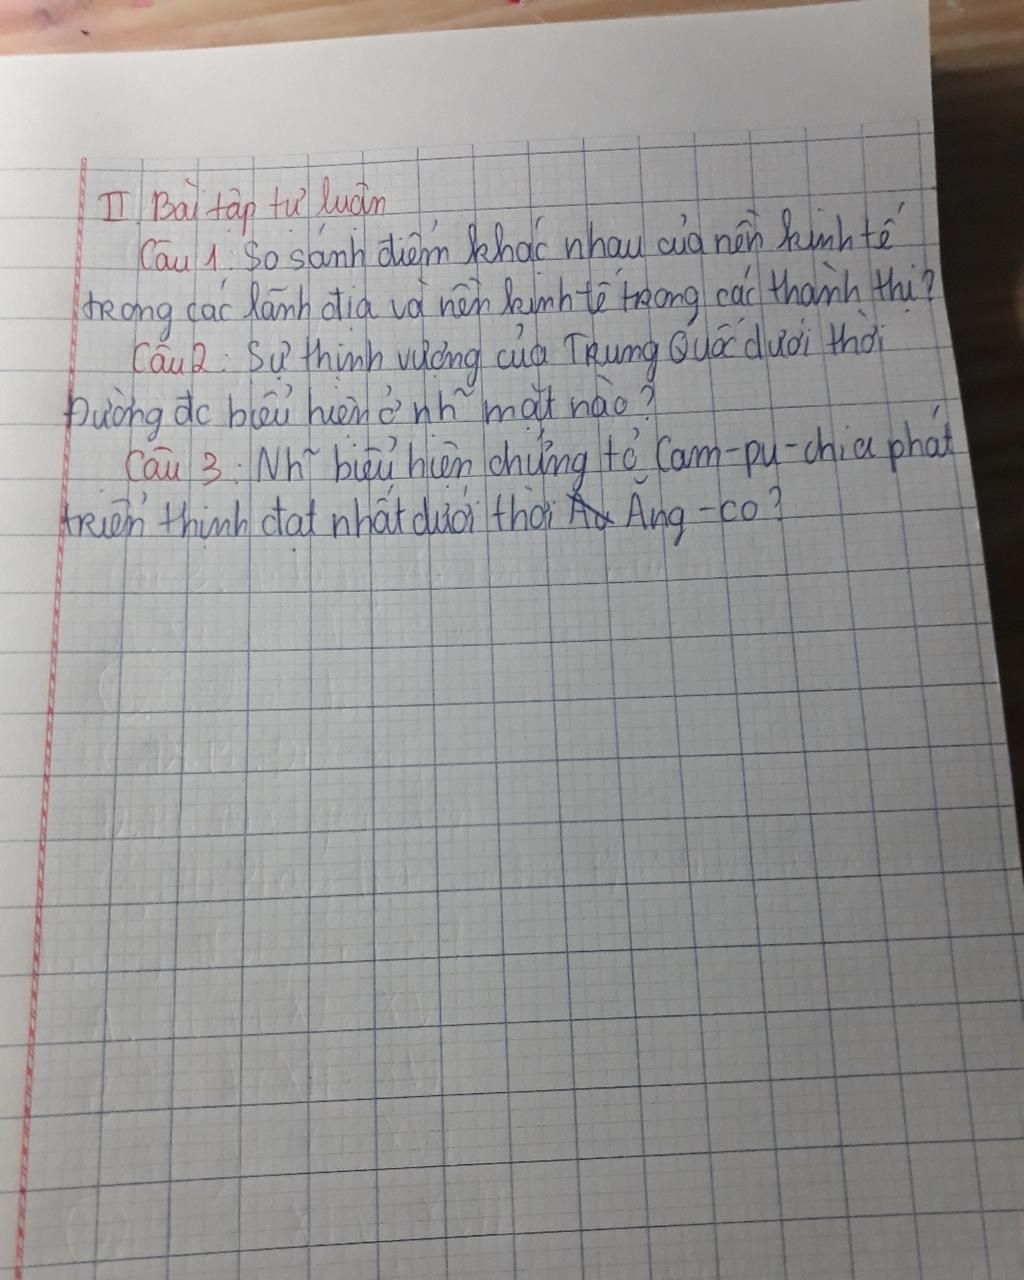 II. Bài tập tự luận
Câu 1: So sánh điểm khác nhau của nền kinh tế
trong các lãnh địa và nền kinh tế trong các thành thị?
Câu 2: Sự thịnh vượng của Trung Quốc dưới thời
Đường đc biểu hiện ở nh~ mặt nào?
Câu 3: Nh~ biểu hiện chứng tỏ Cam-pu-chia phát
triển thịnh đạt nhất dưới thời Ăng-co?